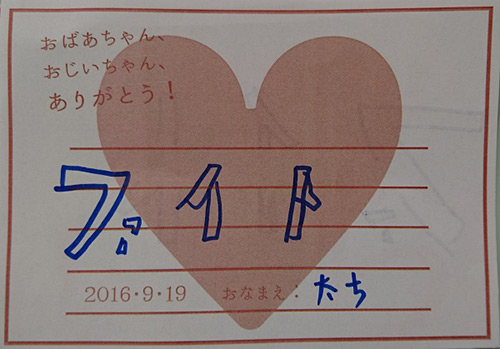 おばあちゃん、
おじいちゃん、
ありがとう！
ファイト
2016・9・19 おなまえ：たち